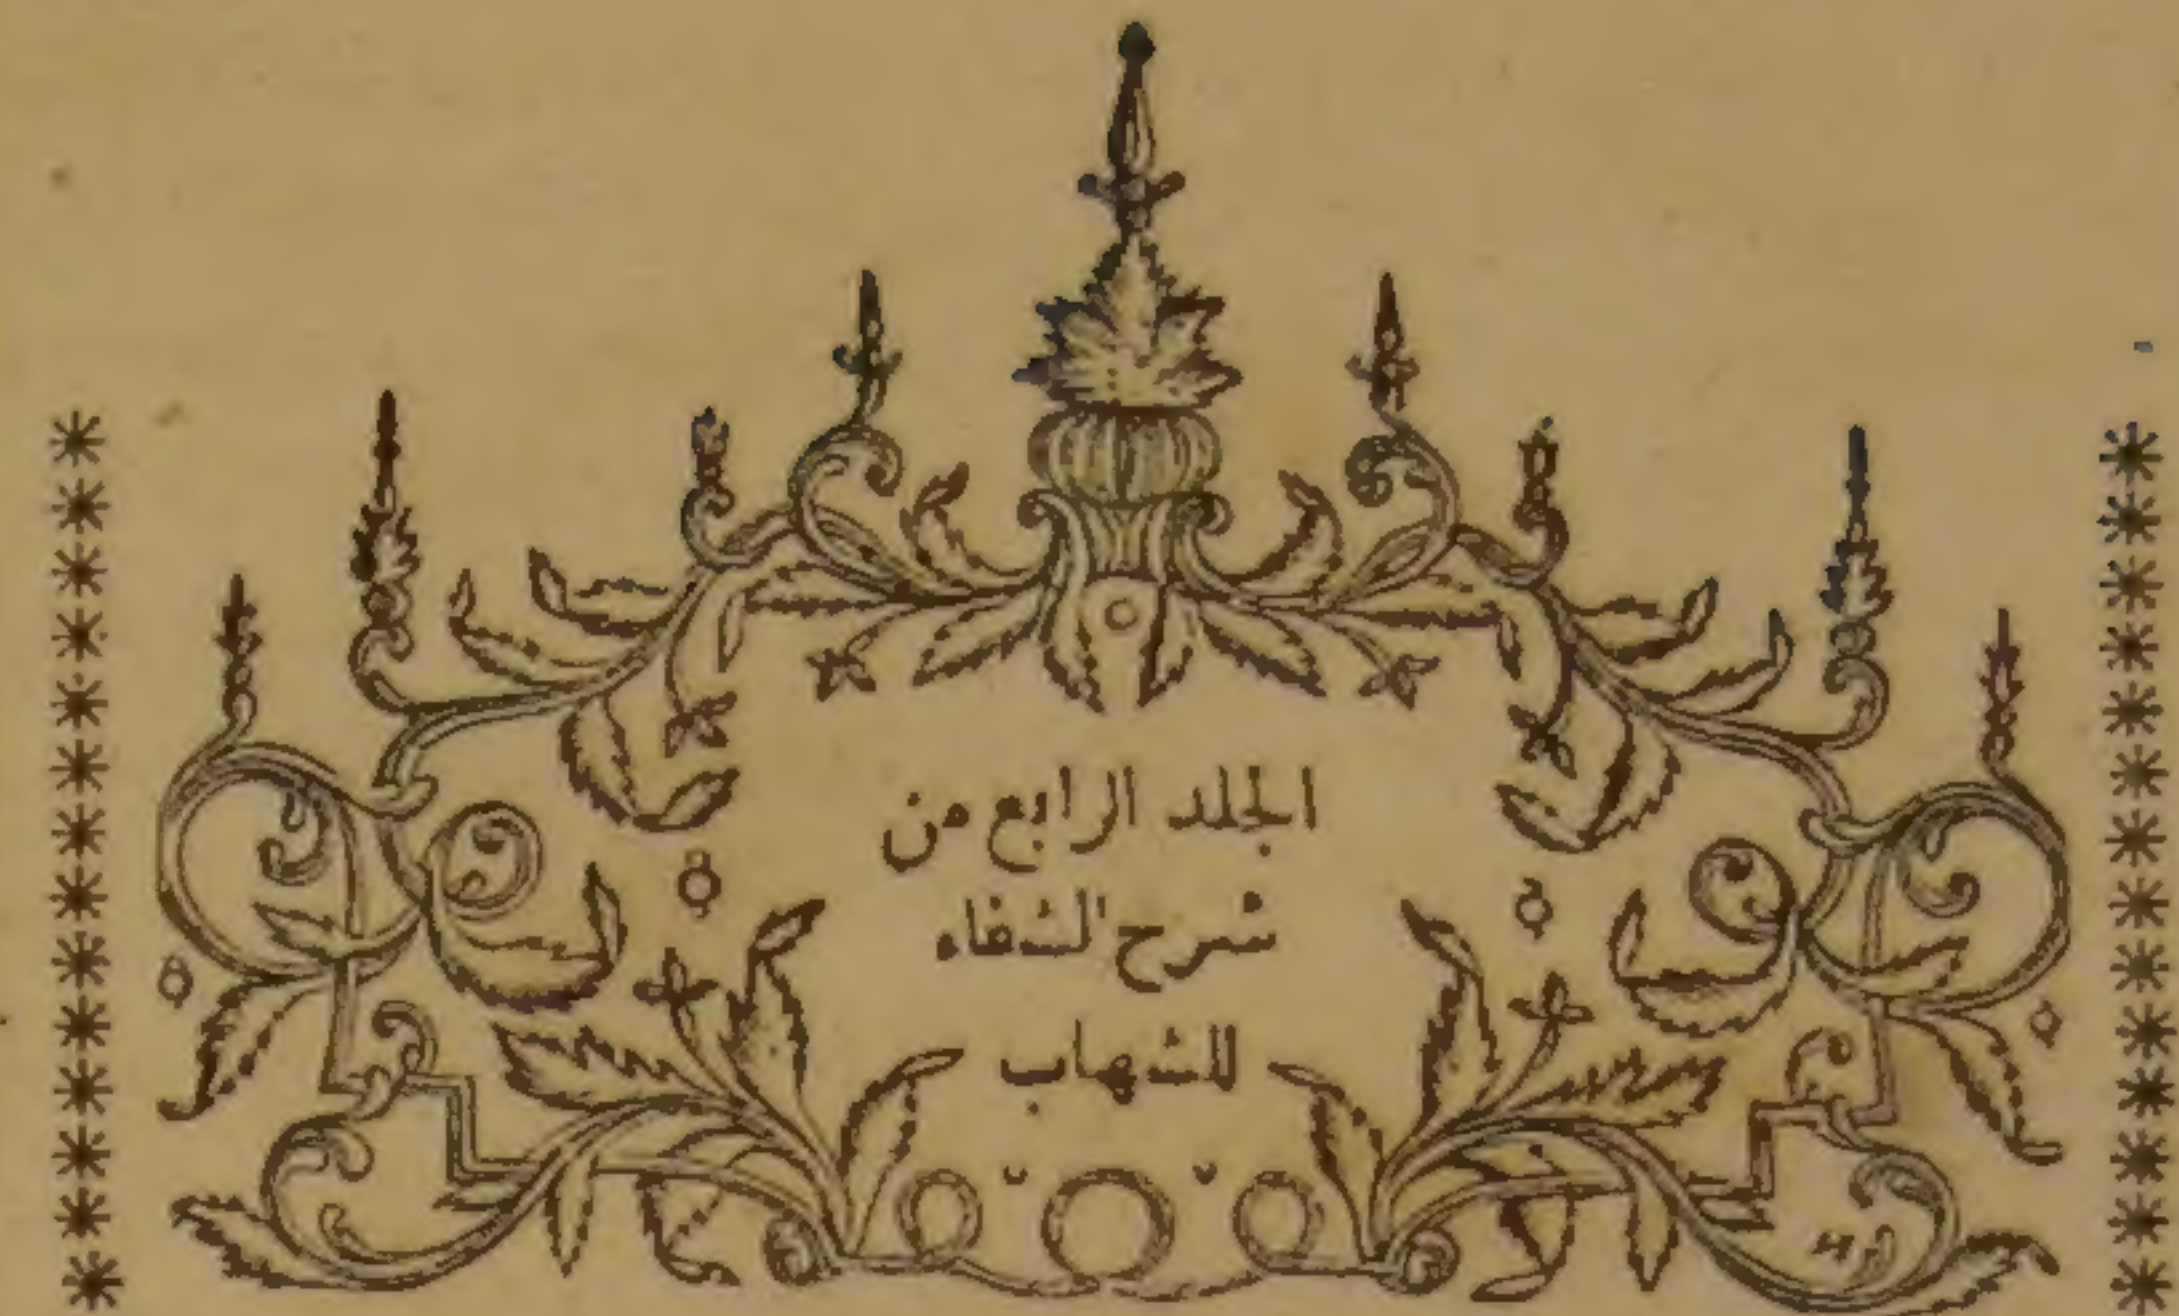 الجلد الرابع من
شرح الشفاء
للشهاب